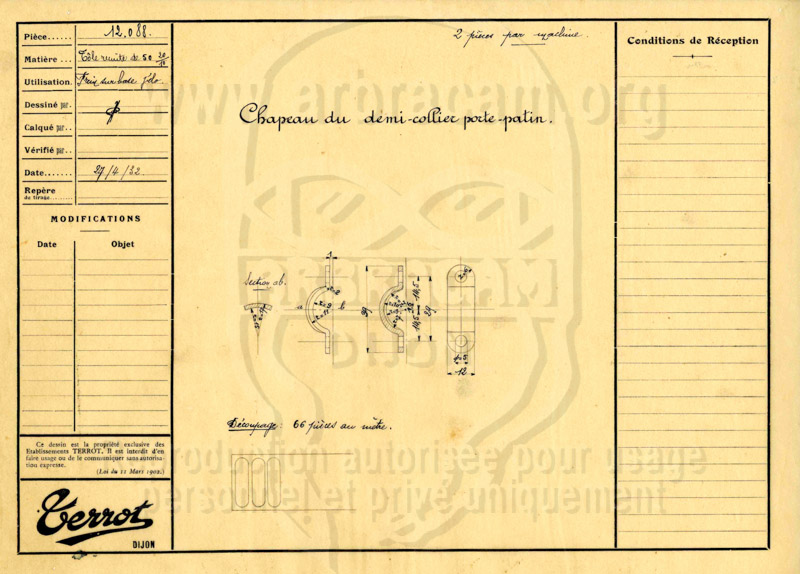 Pièce...... 12.088.
Matière... Tôle recuite de 50 20/10
Utilisation. Frein sur base Vélo.
Dessiné par.
Calqué par..
Vérifié par..
Date....... 27/4/32
Repère
de tirage.........
MODIFICATIONS
Date Objet
Ce dessin est la propriété exclusive des
Etablissements TERROT. Il est interdit d'en
faire usage ou de le communiquer sans autorisa-
tion expresse.
(Loi du 11 Mars 1902.)
Terrot
DIJON
2 pièces par machine.
Chapeau du demi-collier porte-patin.
Section ab.
a b
39
14,5 14,5
29
12
Découpage: 66 pièces au mètre.
Conditions de Réception
www.arbracam.org
ARBRACAM
DIJON
Reproduction autorisée pour usage
personnel et privé uniquement